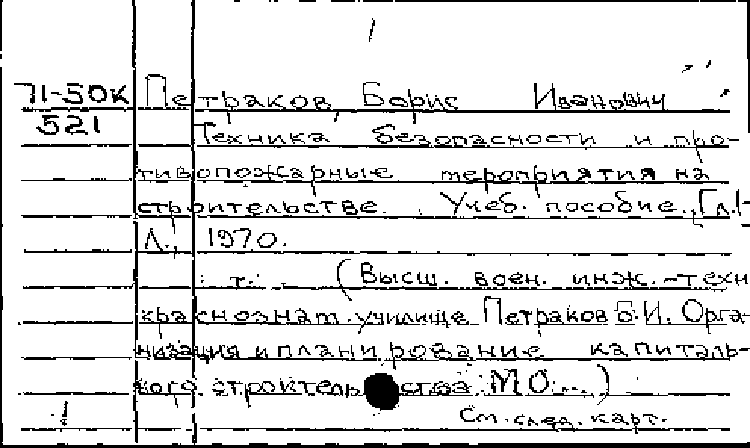 71-50к Петраков, Борис Иванович
521 Техника безопасности и про-
тивопожарные мероприятия на
строительстве. Учеб. пособие. [Гл. 1-
Л., 1970.
т. (Высш. воен. инж.-техн
краснознам. училище Петраков Б.И. Орга-
низация и планирование капиталь-
ного строительства: М.О....)
См. след. карт.